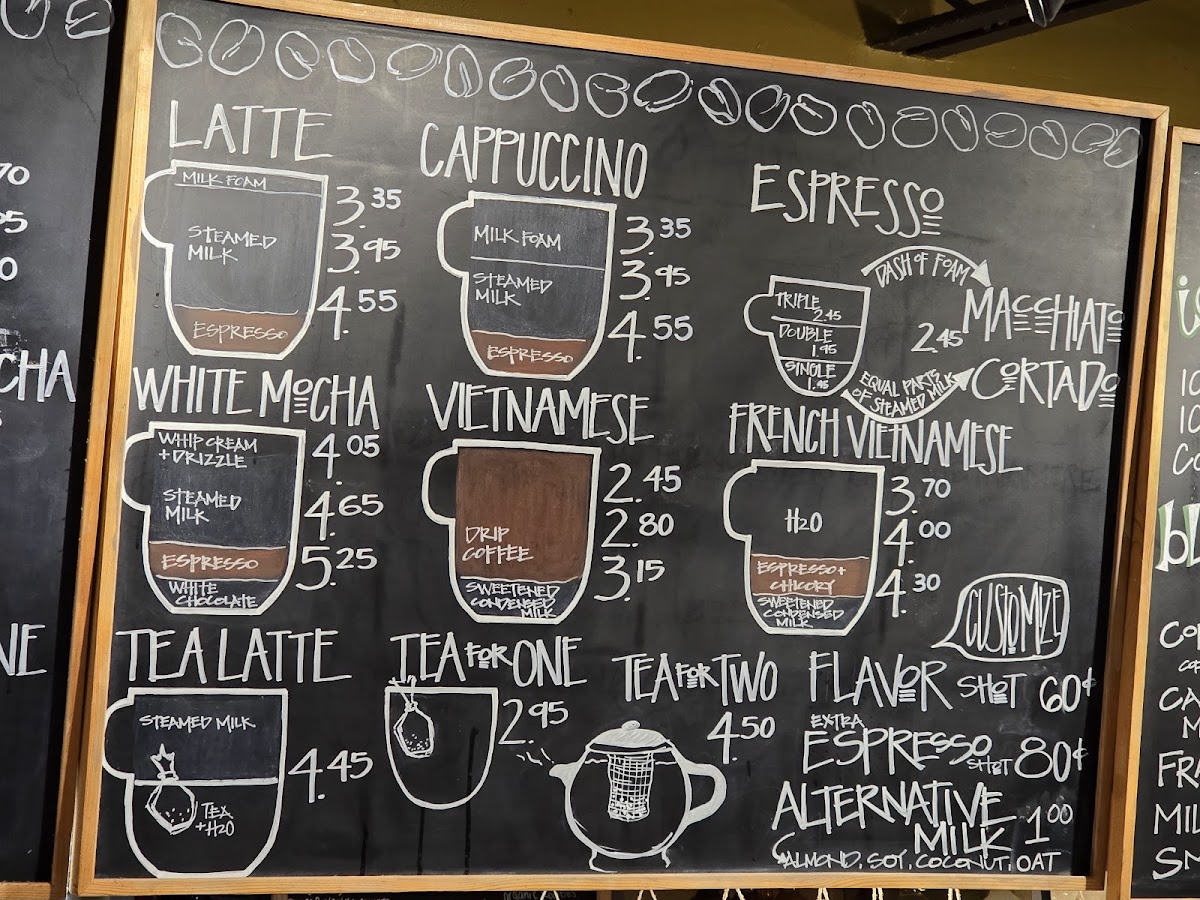 LATTE
MILK FOAM
STEAMED
MILK
ESPRESSO
3.35
3.95
4.55
CAPPUCCINO
MILK FOAM
STEAMED
MILK
ESPRESSO
3.35
3.95
4.55
ESPRESSO
TRIPLE
2.45
DOUBLE
1.95
SINGLE
1.45
DASH OF FOAM
MACCHIATO
2.45
CORTADO
EQUAL PARTS
OF STEAMED MILK
WHITE MOCHA
WHIP CREAM
+ DRIZZLE
STEAMED
MILK
ESPRESSO
WHITE
CHOCOLATE
4.05
4.65
5.25
VIETNAMESE
DRIP
COFFEE
SWEETENED
CONDENSED
MILK
2.45
2.80
3.15
FRENCH VIETNAMESE
H2O
ESPRESSO +
CHICORY
SWEETENED
CONDENSED
MILK
3.70
4.00
4.30
TEA LATTE
STEAMED MILK
TEA
+ H2O
4.45
TEA FOR ONE
2.95
TEA FOR TWO
4.50
CUSTOMIZE
FLAVOR SHOT 60¢
EXTRA
ESPRESSO SHOT 80¢
ALTERNATIVE
MILK 1.00
ALMOND, SOY, COCONUT, OAT